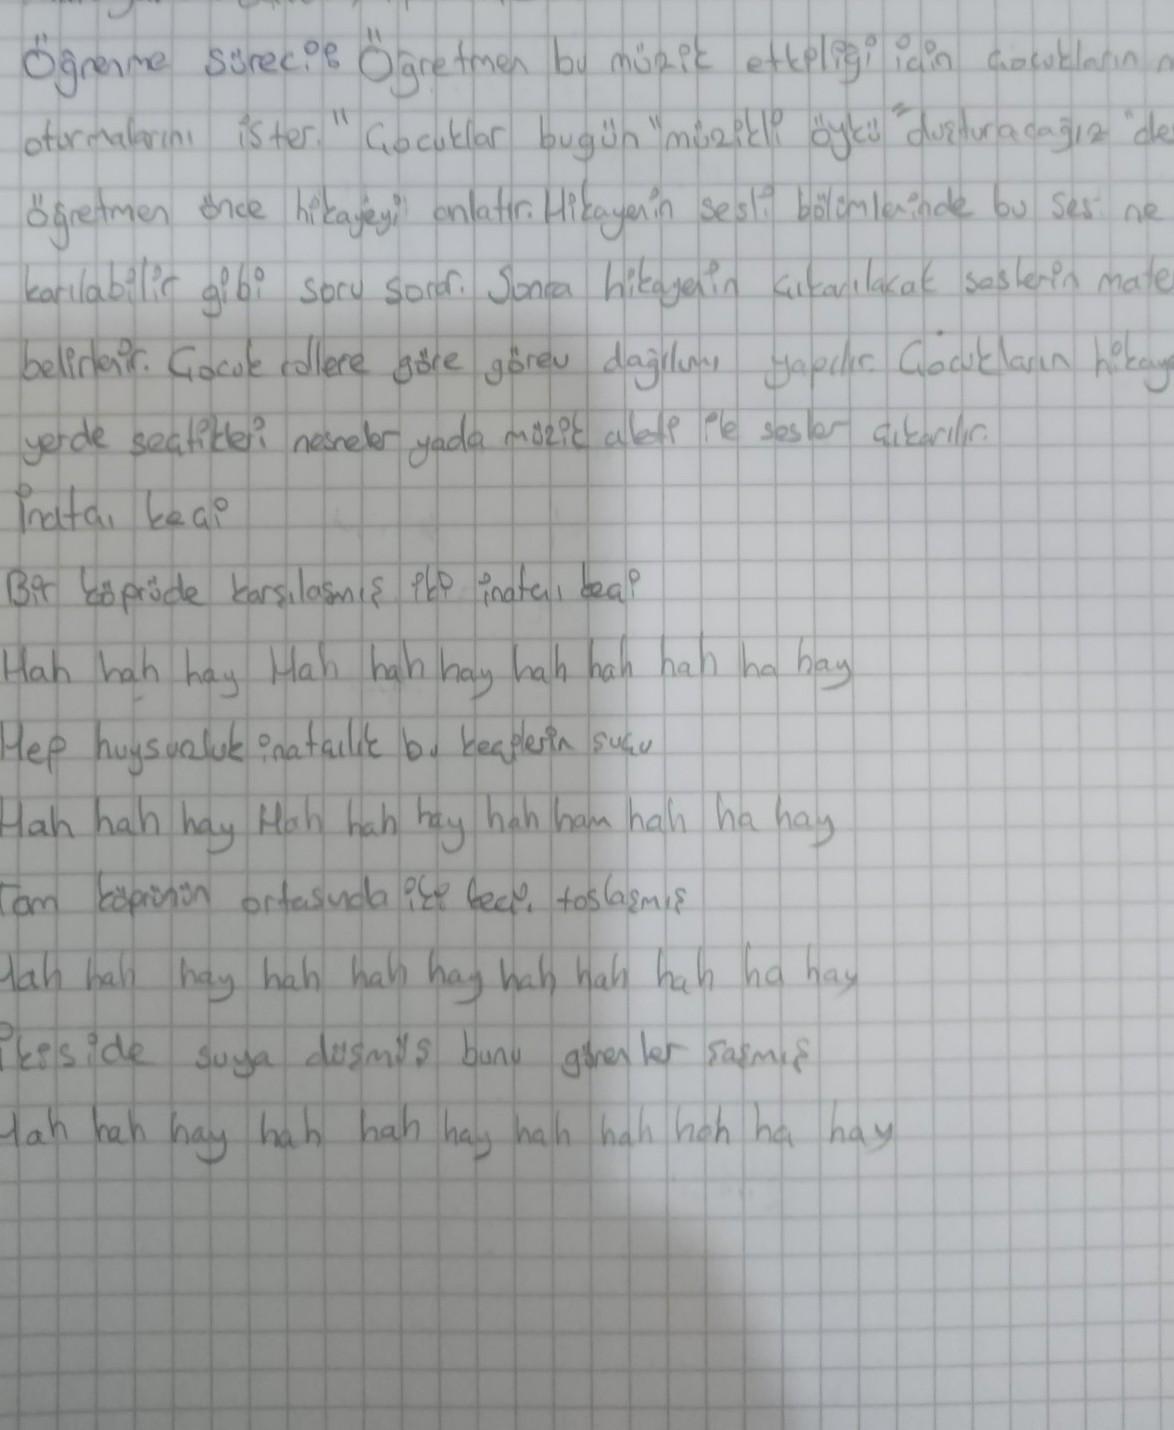 Öğrenme süreci: Öğretmen bu müzik etkpliği için Çocukların
oturmalarını ister." Çocuklar bugün "müzikli öykü" duşturacağız "de
öğretmen önce hikayeyi anlatır. Hikayenin sesli bölümlerinde bu ses ne
karılabilir gibi soru sorar. Sonra hikayenin çıkarılacak seslerin mate
belirlenir. Çocuk rollere göre görev dağılımı yapılır. Çocukların hikay
yerde seçtikleri nesneler yada müzik aleti ile sesler çıkarılır.
İnatçı keçi
Bir köprüde karşılaşmış iki inatçı keçi
Hah hah hay Hah hah hay hah hah hah ha hay
Hep huysuzluk inatçılık bu keçilerin suçu
Hah hah hay Hah hah hay hah ham hah ha hay
Tam köprünün ortasında iki keçi toslaşmış
Hah hah hay hah hah hay hah hah hah ha hay
İkiside suya düşmüş bunu görenler şaşmış
Hah hah hay hah hah hay hah hah hah ha hay